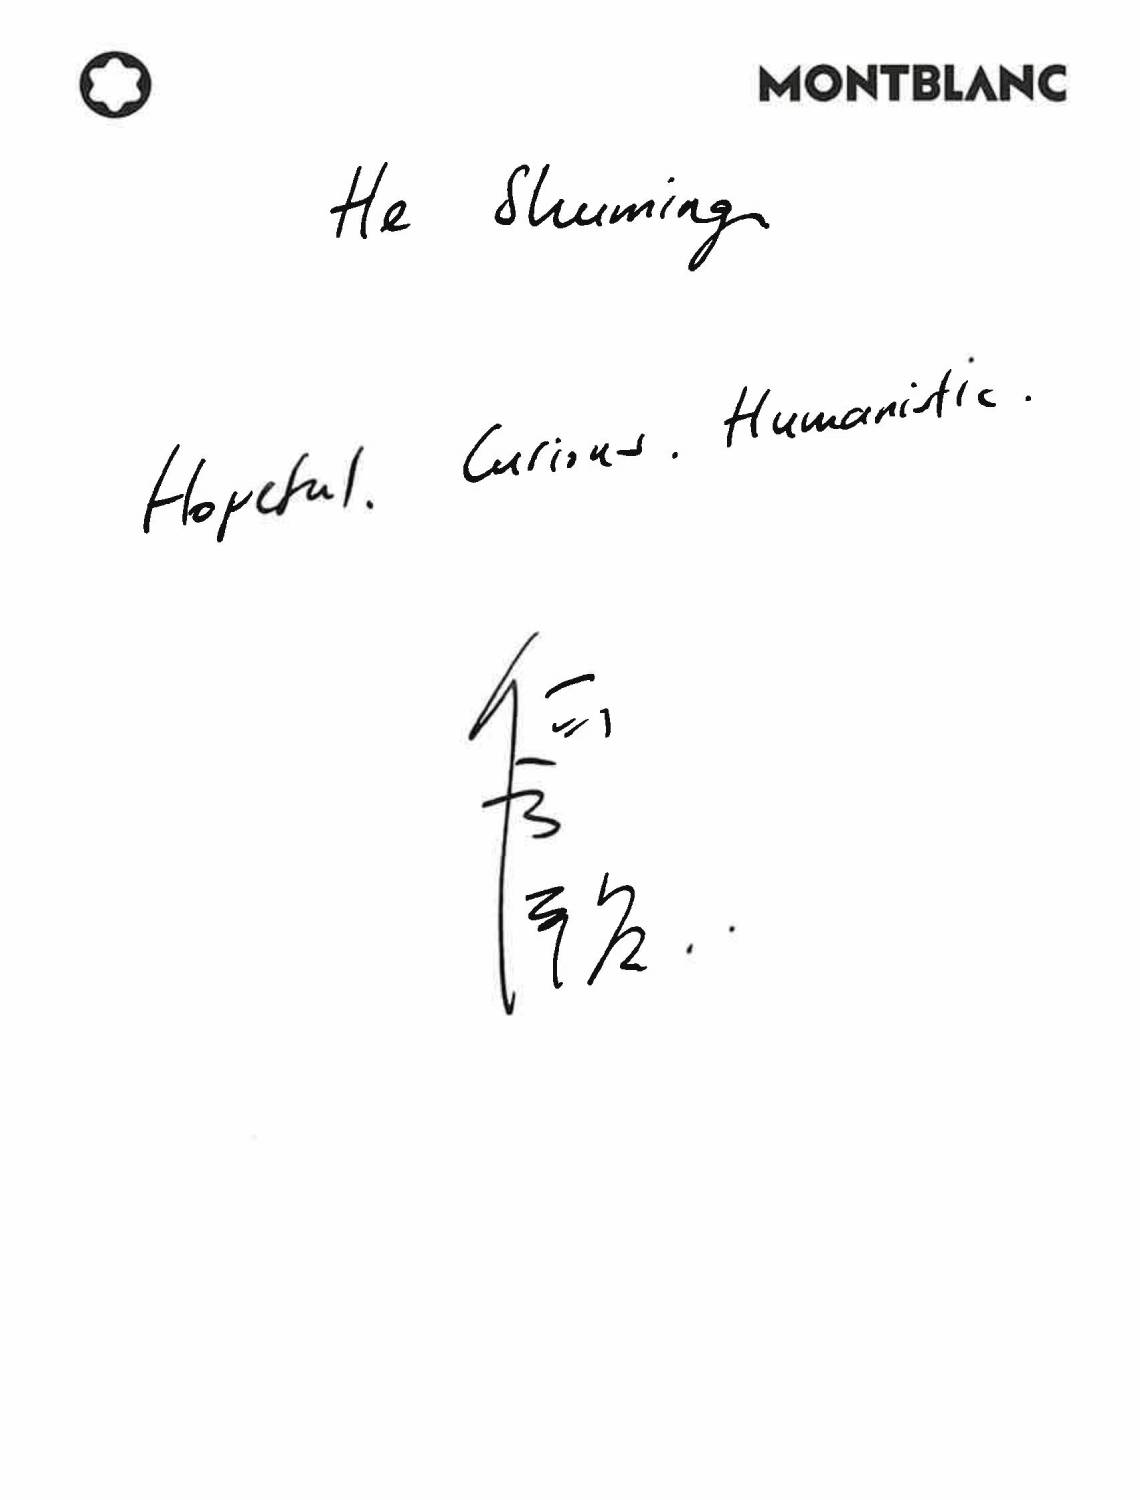 MONTBLANC
He Shuming
Hopeful. Curious. Humanistic.
何
书
铭